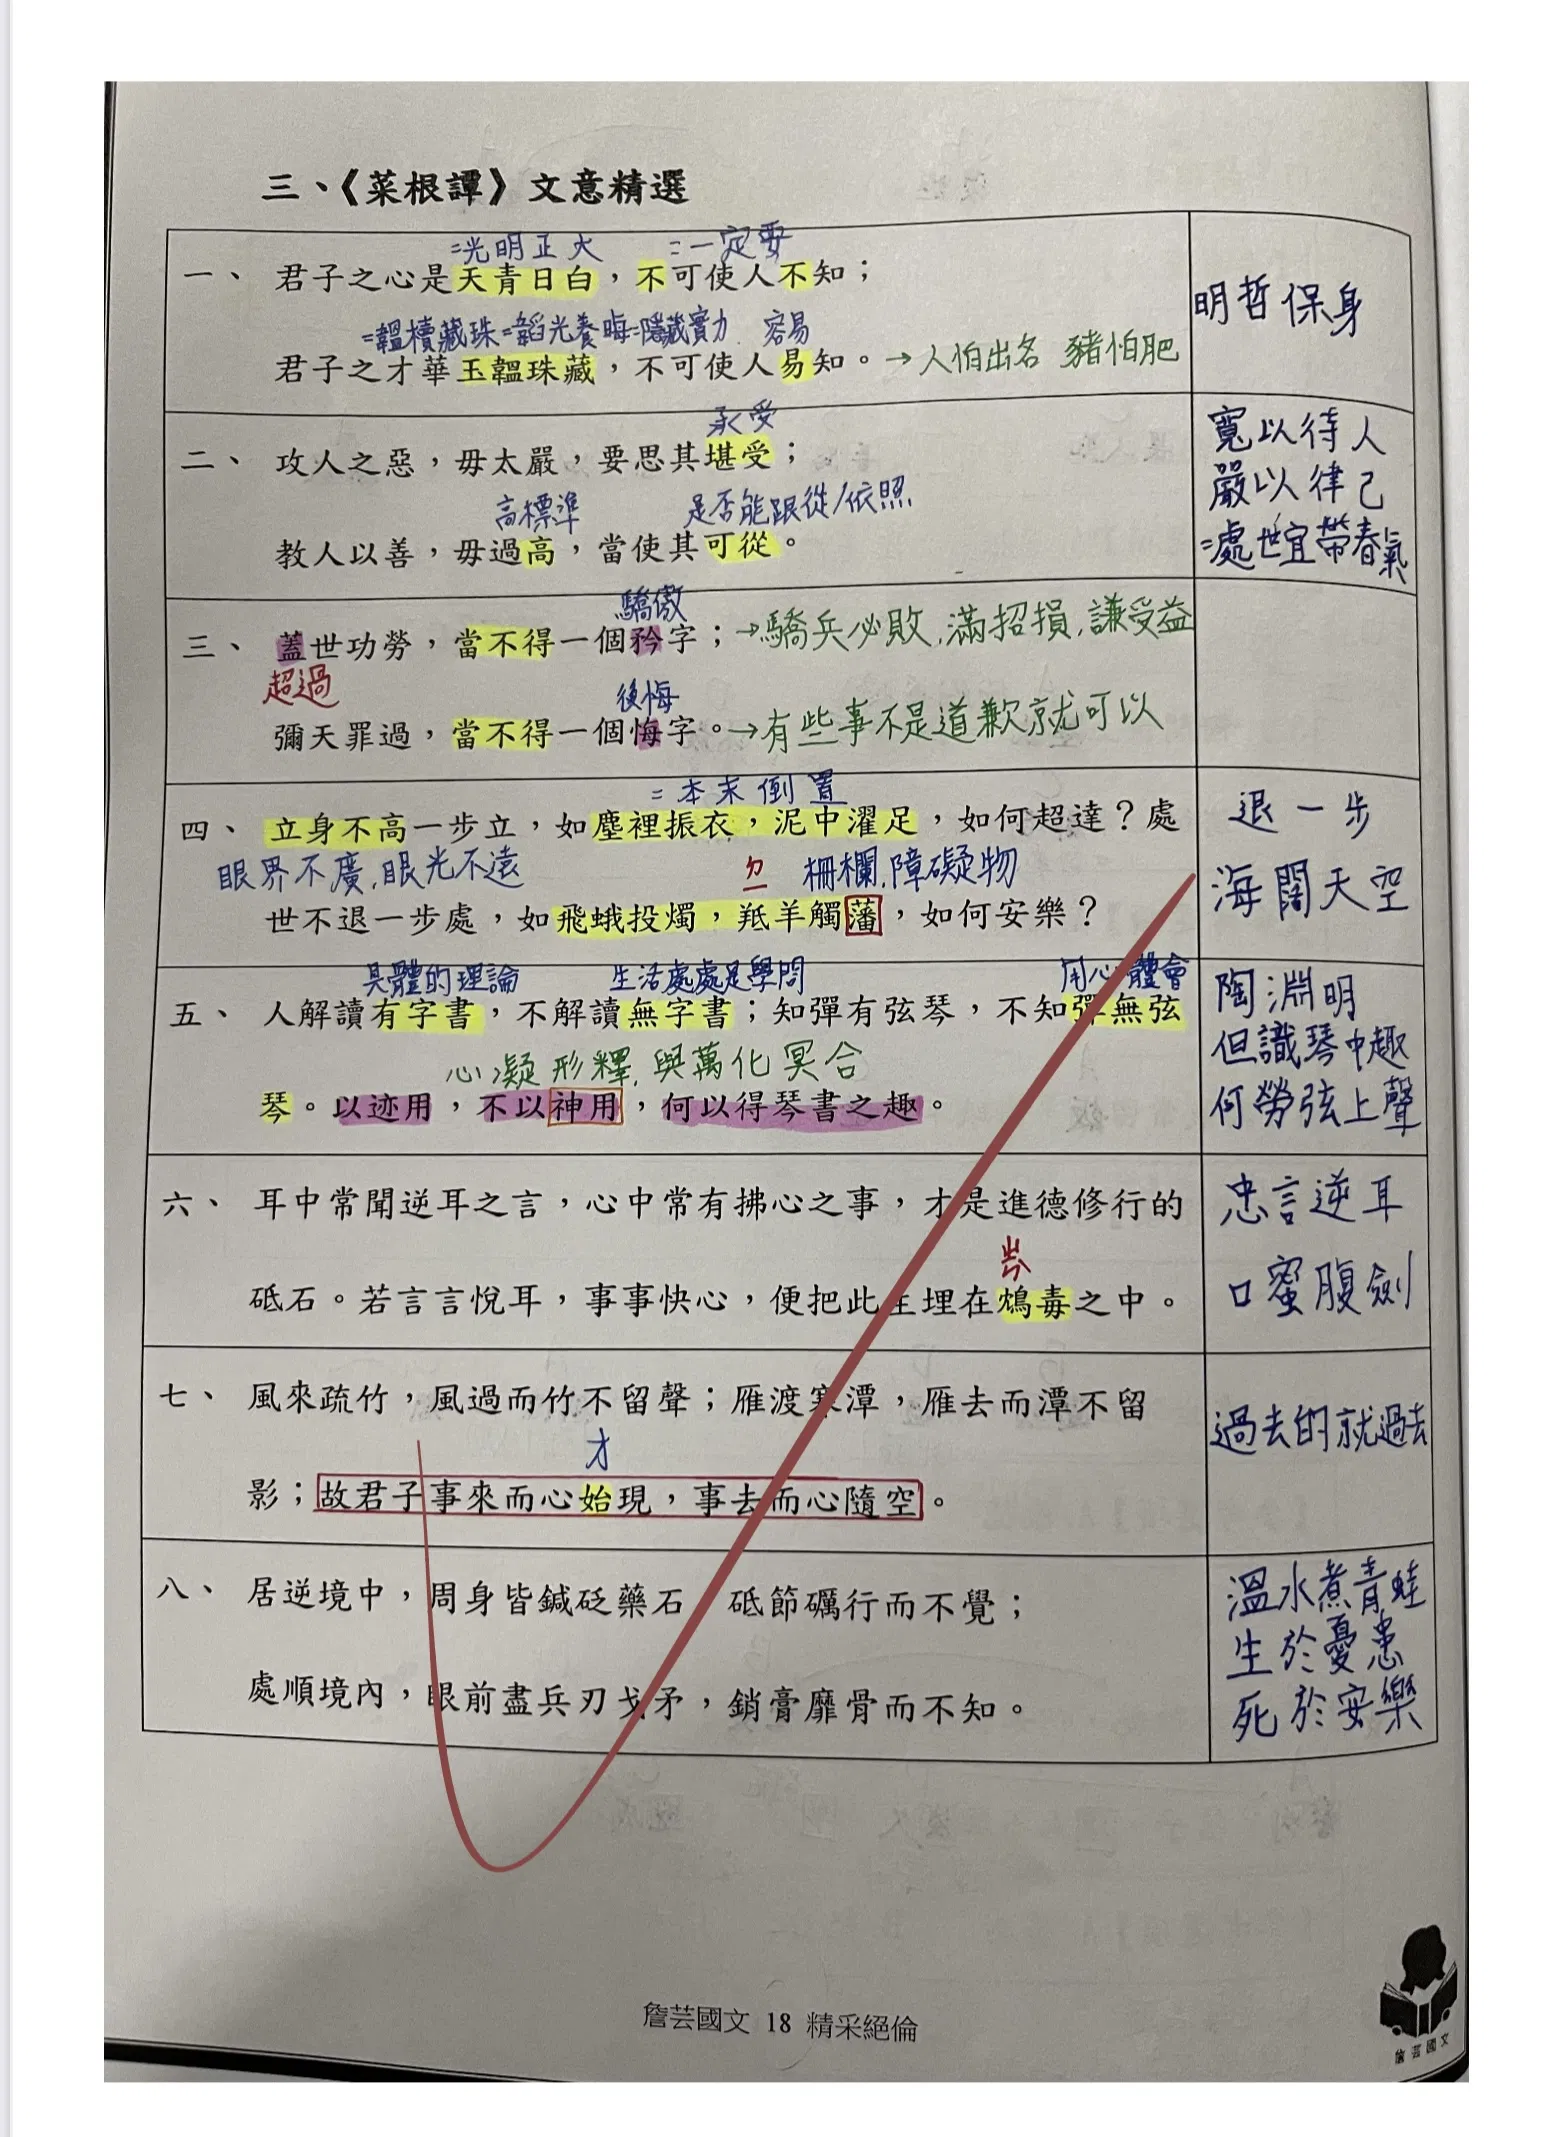 三、《菜根譚》文意精選
=光明正大 =一定要
一、君子之心是天青日白，不可使人不知；
明哲保身
=韞櫝藏珠=韜光養晦=隱藏實力 容易
君子之才華玉韞珠藏，不可使人易知。→人怕出名 豬怕肥
承受
二、攻人之惡，毋太嚴，要思其堪受；
寬以待人
嚴以律己
=處世宜帶春氣
高標準 是否能跟從/依照
教人以善，毋過高，當使其可從。
驕傲
三、蓋世功勞，當不得一個矜字；→驕兵必敗,滿招損,謙受益
超過
後悔
彌天罪過，當不得一個悔字。→有些事不是道歉就可以
=本末倒置
四、立身不高一步立，如塵裡振衣，泥中濯足，如何超達？處
退一步
海闊天空
眼界不廣,眼光不遠 ㄉㄧ 柵欄,障礙物
世不退一步處，如飛蛾投燭，羝羊觸藩，如何安樂？
具體的理論 生活處處是學問 用心體會
五、人解讀有字書，不解讀無字書；知彈有弦琴，不知彈無弦
陶淵明
但識琴中趣
何勞弦上聲
心凝形釋,與萬化冥合
琴。以迹用，不以神用，何以得琴書之趣。
六、耳中常聞逆耳之言，心中常有拂心之事，才是進德修行的
忠言逆耳
口蜜腹劍
ㄓㄣˋ
砥石。若言言悅耳，事事快心，便把此生埋在鴆毒之中。
七、風來疏竹，風過而竹不留聲；雁渡寒潭，雁去而潭不留
過去的就過去
才
影；故君子事來而心始現，事去而心隨空。
八、居逆境中，周身皆鍼砭藥石 砥節礪行而不覺；
溫水煮青蛙
生於憂患
死於安樂
處順境內，眼前盡兵刃戈矛，銷膏靡骨而不知。
詹芸國文 18 精采絕倫
詹芸國文